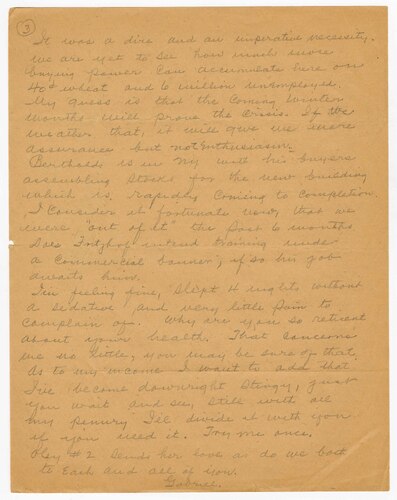 3
It was a dire and an imperative necessity.
We are yet to see how much more
buying power can accumulate here on
40¢ wheat and 6 million unemployed.
My guess is that the coming Winter
months will prove the Crisis. If we
weather that, it will give us more
assurance but not Enthusiasm.
Berthold is in NY with his buyers
assembling stocks for the new building
which is rapidly coming to completion
I consider it fortunate now, that we
were "out of it" the past 6 months
Does intend training under
a Commercial banner; if so his job
awaits him.
I'm feeling fine, slept 4 nights without
a sedative and very little pain to
complain of. Why are you so reticent
about your health. That concerns
us no little, you may be sure of that.
As to my income I want to add that
I've become downright stingy, just
you wait and see, still with all
my penury I'll divide it with you
if you need it. Try me once.
#2 sends her love as do we both
to Each and all of you.
Gabriel.